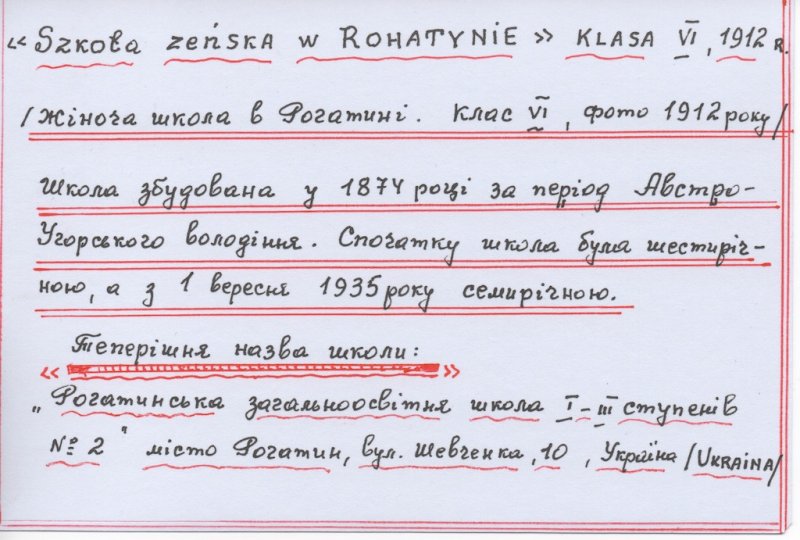 « Szkoła zeńska w Rohatynie » klasa VI, 1912 r.
/Жіноча школа в Рогатині. Клас VI, фото 1912 року/
Школа збудована у 1874 році за період Австро-
Угорського володіння. Спочатку школа була шестиріч-
ною, а з 1 вересня 1935 року семирічною.
Теперішня назва школи:
« »
„Рогатинська загальноосвітня школа I-III ступенів
№ 2" місто Рогатин, вул. Шевченка, 10, Україна /Ukraina/